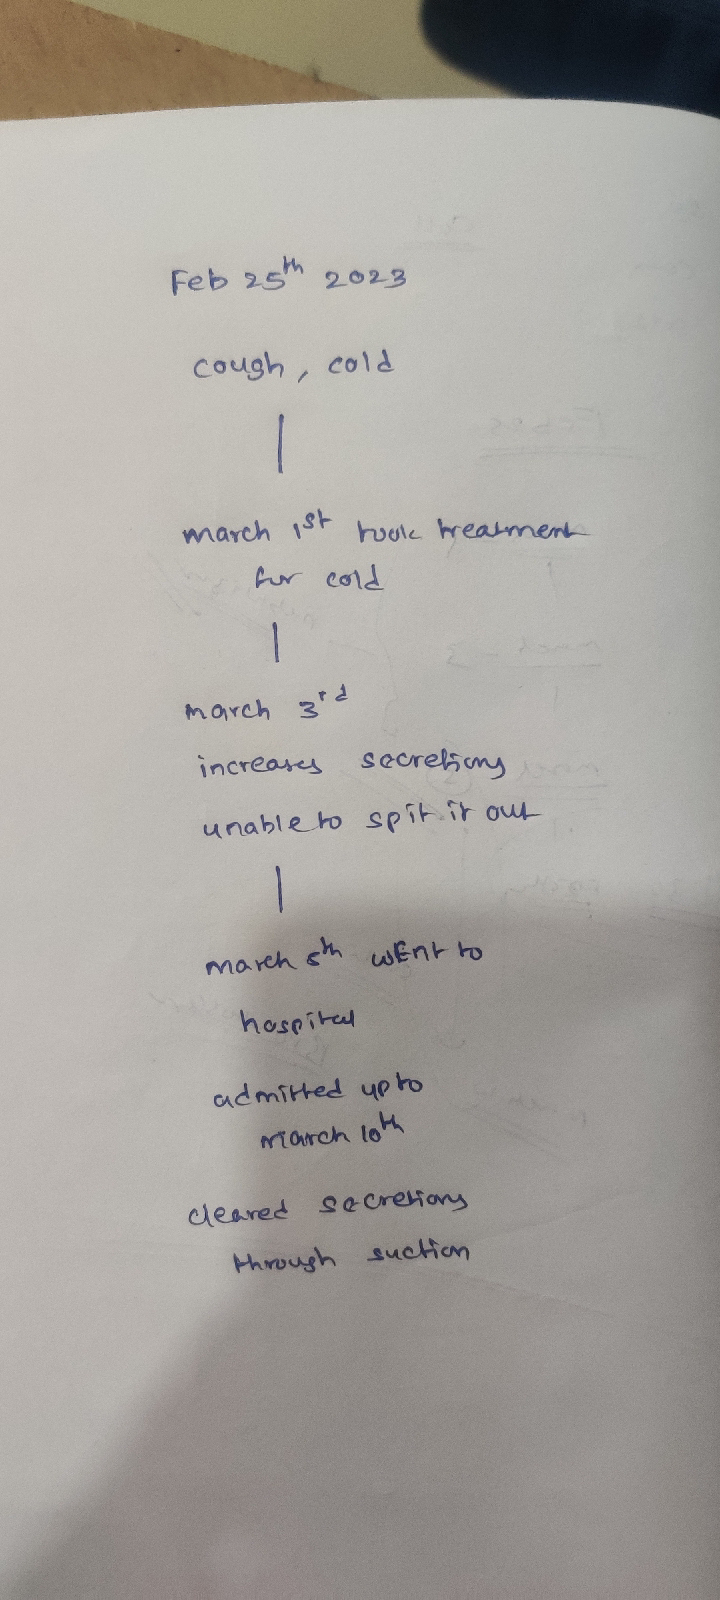 Feb 25th 2023
cough, cold
march 1st took treatment
for cold
march 3rd
increases secretions
unable to spit it out
march 5th wEnt to
hospital
admitted upto
march 10th
cleared secretions
through suction